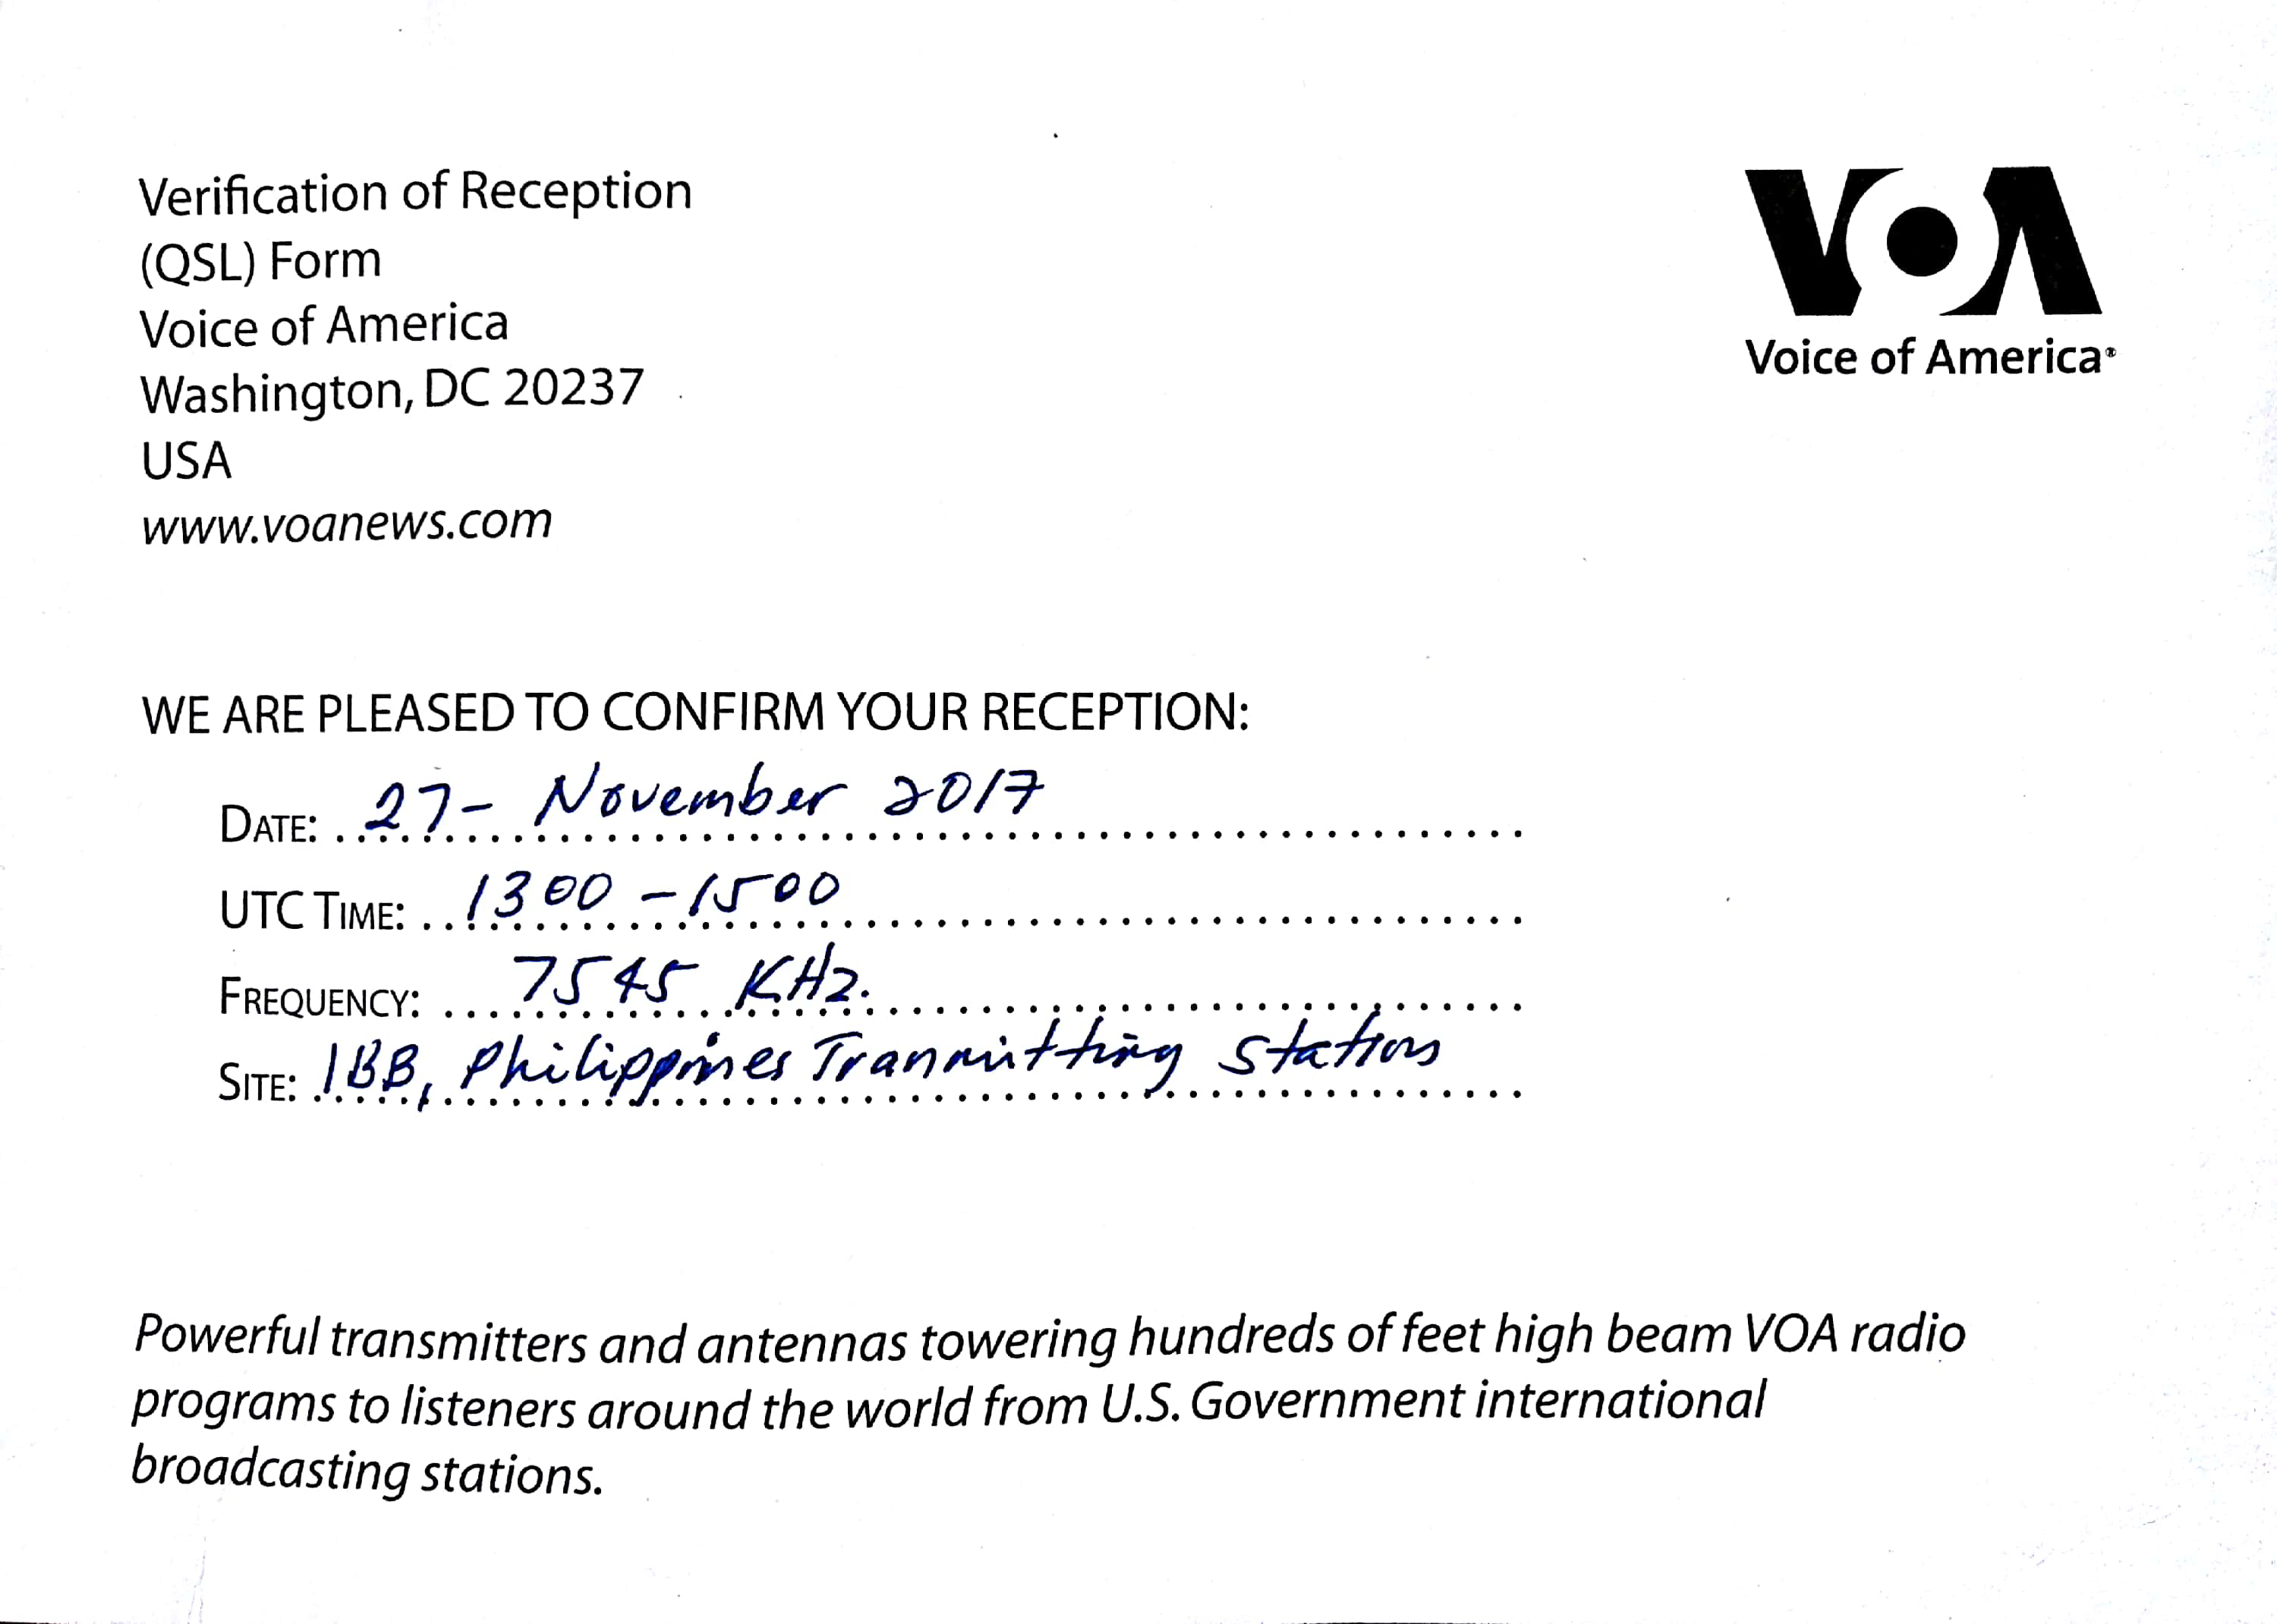 Verification of Reception
(QSL) Form
Voice of America
Washington, DC 20237
USA
www.voanews.com
VOA
Voice of America®
WE ARE PLEASED TO CONFIRM YOUR RECEPTION:
DATE: 27- November 2017
UTC TIME: 1300 - 1500
FREQUENCY: 7545 KHz.
SITE: IBB, Philippines Tranmitting Station
Powerful transmitters and antennas towering hundreds of feet high beam VOA radio
programs to listeners around the world from U.S. Government international
broadcasting stations.